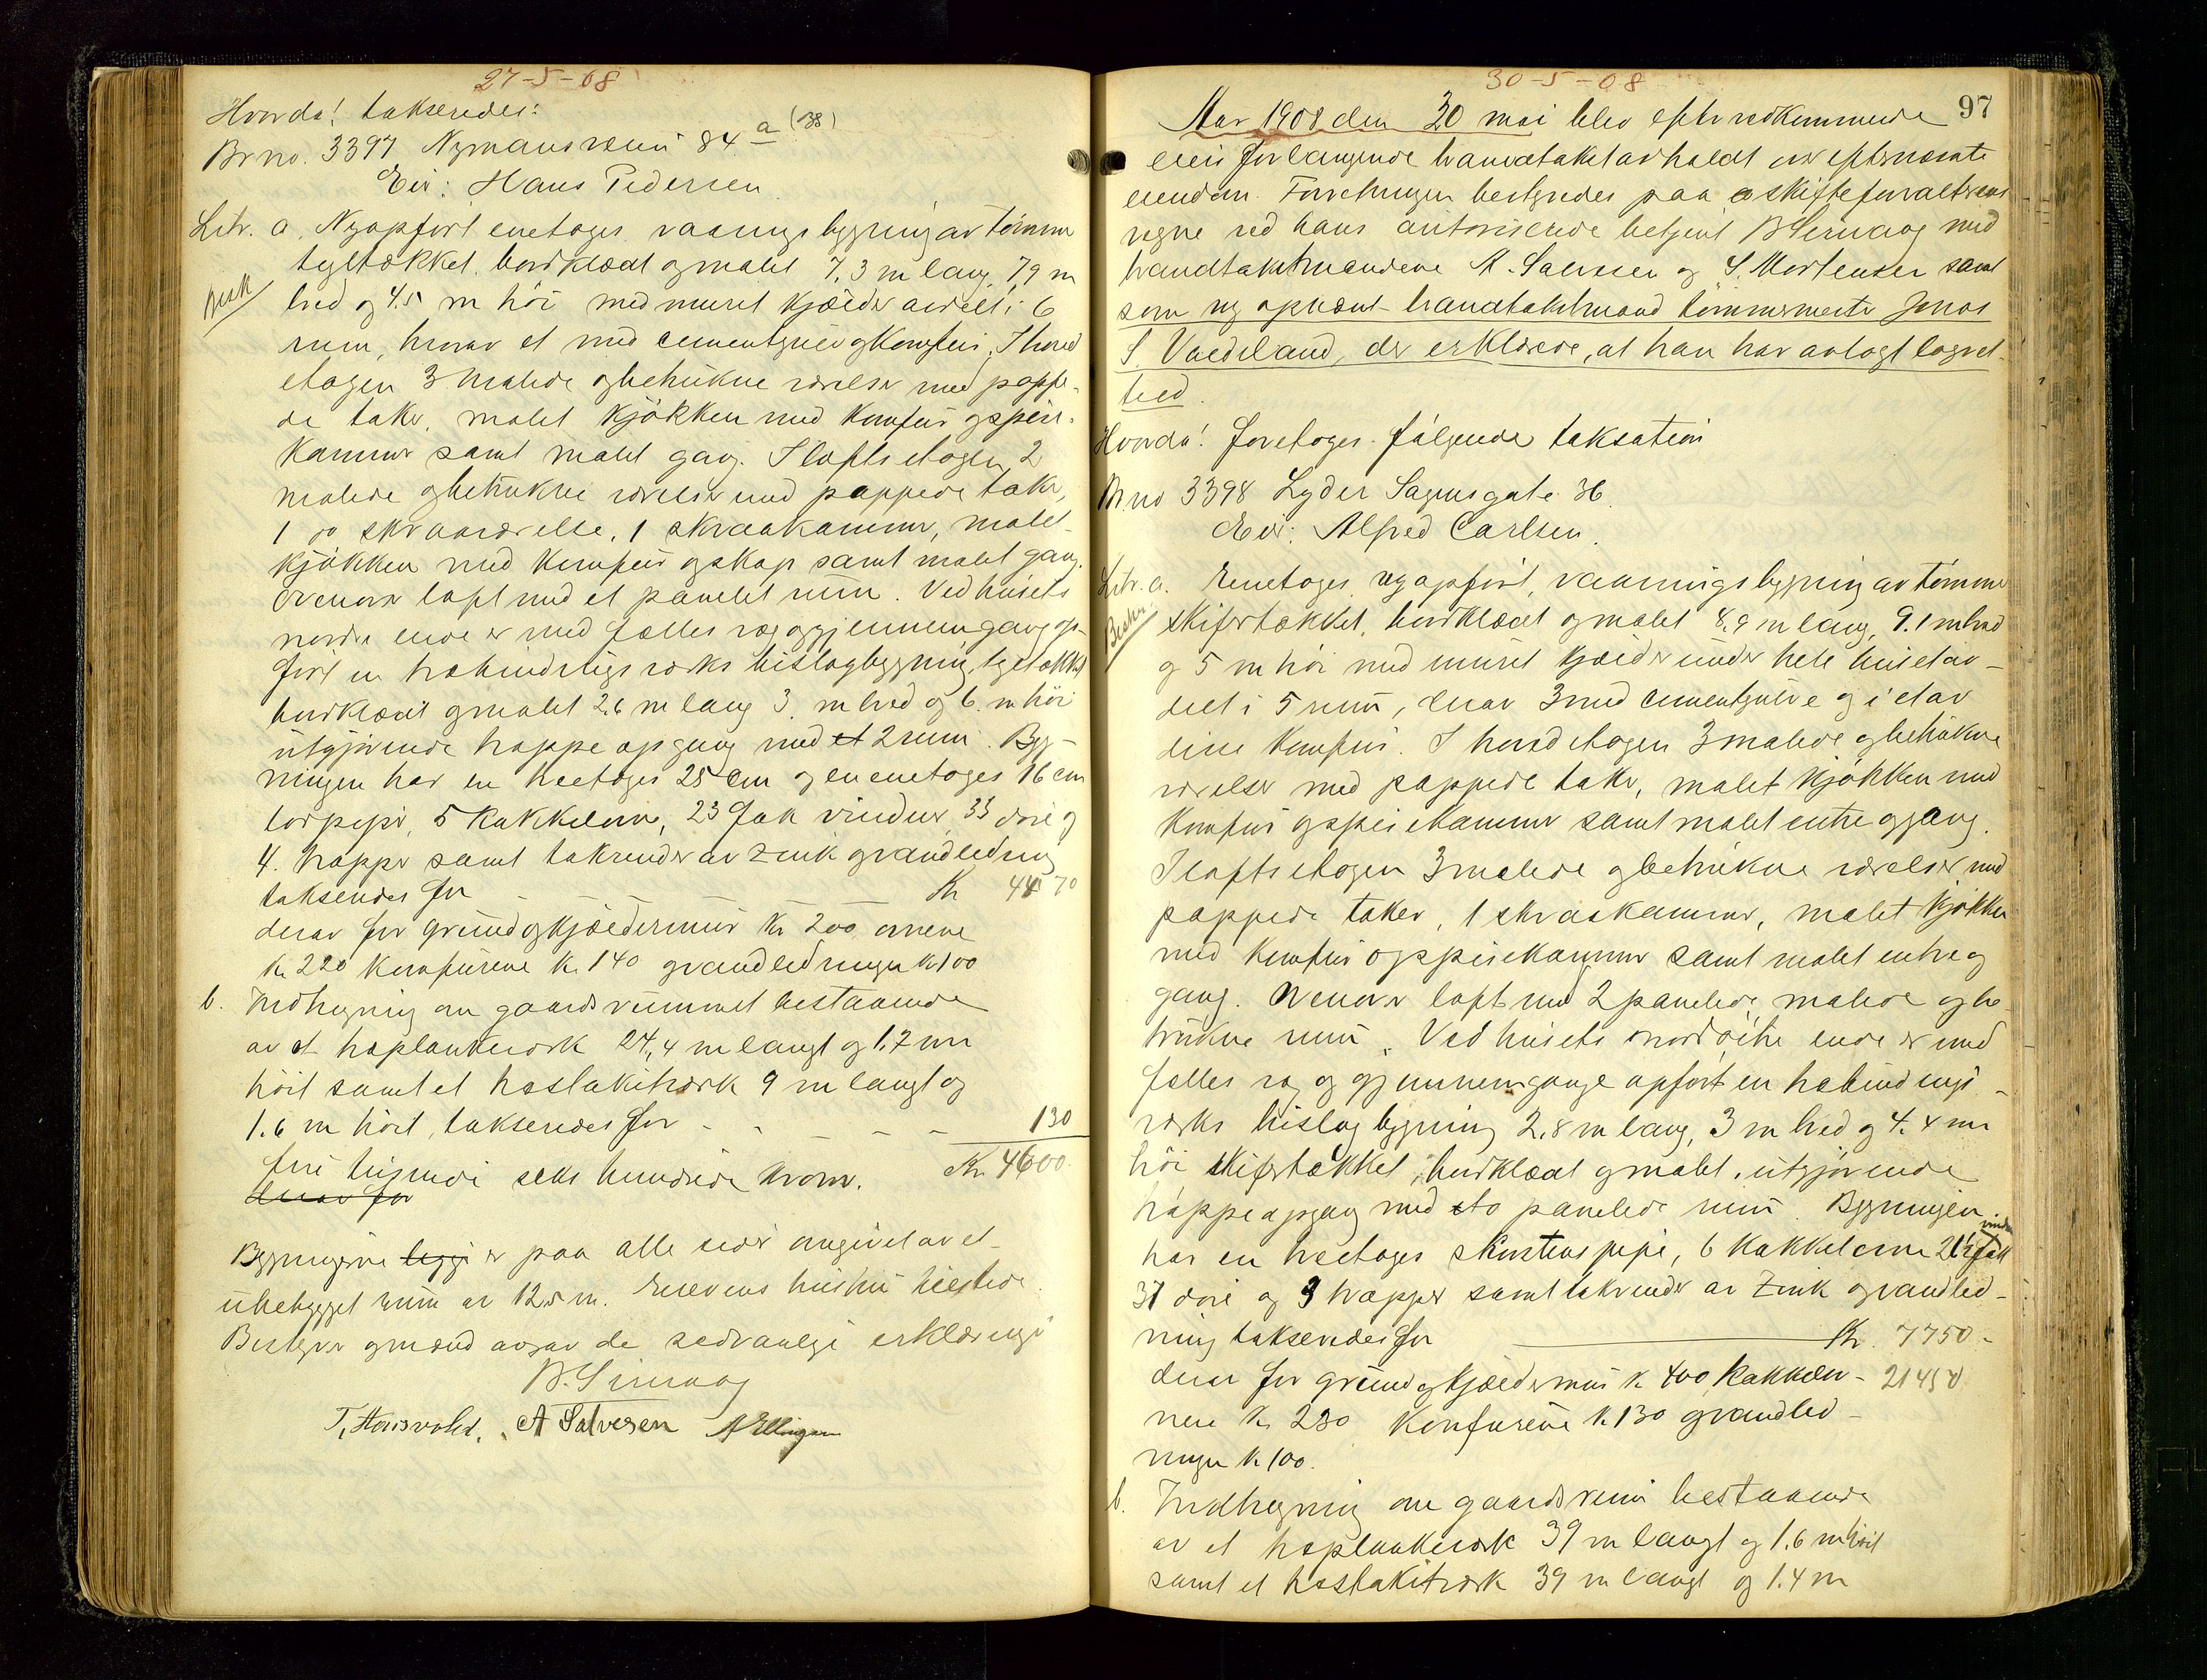 27-5-08
Hvorda! takseredes:
Br no. 3397 Nymansveien 84 a (38)
Eier: Hans Pedersen
Litr. a. Nyopført enetages vaaningsbygning av tømmer
tegltækket, bordklædt og malet 7,3 m lang, 7,9 m
Besk
bred og 4.5 m høi med muret kjælder avdelt i 6
rum, hvorav et med cementgulv og komfur. I hoved
etagen 3 malede og betrukne værelser med pappe-
de taker, malet kjøkken med komfur og spise-
kammer samt malet gang. I loftsetagen 2
malede og betrukne værelser med pappede taker,
1 do skraaværelse, 1 skraakammer, malet
kjøkken med komfur og skap samt malet gang.
Ovenover loft med et panelet rum. Ved husets
nordre ende er med fælles væg og gjennemgang op-
ført en træbindingsverks bislagbygning, tegltækket
bordklædt og malet 2,6 m lang 3 m bred og 6 m høi
utgjørende trappeopgang med et 2 rum. Byg-
ningen har en treetages 25 cm og en enetages 16 cm
rørpipe, 5 kakkelovne, 23 fak vinduer, 33 døre og
4 trapper samt takrender av zink og vandledning
takseredes for Kr 4470
derav for grund og kjældermur Kr 200 ovnene
Kr. 220 komfurene Kr. 140 og vandledningen Kr 100
b. Indhegning om gaardsrummet bestaaende
av et træplankeverk 24,4 m langt og 1,7 m
høit samt et træstakitverk 9 m langt og
1.6 m høit, takseredes for 130
fire tusinde seks hundrede kroner. Kr. 4600
derav for
Bygningerne ligger er paa alle sider omgivet av et
ubebygget rum av 12.5 m.
Bestyrer og mænd avgav de sedvanlige erklæringer
B. Sirevaag
T. Hausvold. A Salvesen A Ellingsen
30-5-08
97
Aar 1908 den 30 mai blev efter vedkommende
eiers forlangende brandtakst avholdt over efternævnte
eiendom. Forretningen bestyredes paa skifteforvalterens
vegne ved hans autoriserede betjent B Sirevaag med
brandtakstmændene A. Salvesen og S. Mortensen samt
som ny opnævnt brandtakstmand tømmermester Jonas
S. Vaadeland, der erklærede, at han har avlagt lagret-
ted.
Hvorda! foretoges følgende taksation
Br no 3398 Lyder Sagensgate 36.
Eier: Alfred Carlsen.
Litr. a. Enetages nyopført, vaaningsbygning av tømmer
Beskr
skifertækket, bordklædt og malet 8,9 m lang, 9.1 m bred
og 5 m høi med muret kjælder under hele huset av-
delt i 5 rum, derav 3 med cementgulve og i et av
disse komfur. I hovedetagen 3 malede og betrukne
værelser med pappede taker, malet kjøkken med
komfur og spisekammer samt malet entre og gang.
I loftsetagen 3 malede og betrukne værelser med
pappede taker, 1 skraakammer, malet kjøkken
med komfur og spisekammer samt malet entre og
gang. Ovenover loft med 2 panelede malede og be-
trukne rum. Ved husets nordøstre ende er med
fælles væg og gjennemgange opført en træbindings-
verks bislagbygning 2,8 m lang, 3 m bred og 4.4 m
høi skifertækket, bordklædt og malet, utgjørende
trappeopgang med to panelede rum. Bygningen
har en treetages skorstenspipe, 6 kakkelovne 21½ fak vinduer
31 døre og 3 trapper samt takrender av zink og vandled-
ning takseredes for Kr. 7750.-
derav for grund og kjældermur Kr 400 kakkelov- 21450
nene Kr 230 komfurene Kr 130 og vandled-
ningen Kr 100.
b. Indhegning om gaardsrum bestaaende
av et træplankeverk 39 m langt og 1.6 m høit
samt et træstakitverk 39 m langt og 1.4 m